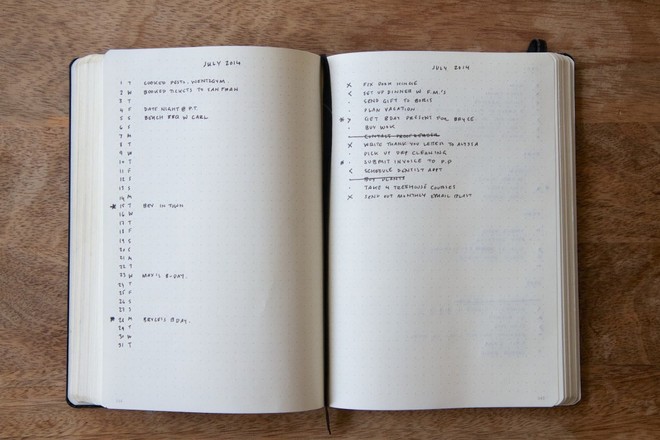 JULY 2014
1 T COOKED PESTO.
2 W BOOKED TICKETS TO SAN FRAN
3 T
4 F DATE NIGHT @ P.T.
5 S BEACH BBQ W CARL
6 S
7 M
8 T
9 W
10 T
11 F
12 S
13 S
14 M
* 15 T BEV IN TOWN
16 W
17 T
18 F
19 S
20 S
21 M
22 T
23 W MAX'S B-DAY.
24 T
25 F
26 S
27 S
28 M BRYCE'S B DAY.
29 T
30 W
31 T
JULY 2014
X FIX DOOR HINGE
< SET UP DINNER W F.M.'S
· SEND GIFT TO BORIS
· PLAN VACATION
* > GET BDAY PRESENT FOR BRYCE
· BUY WOK
CONTACT
X WRITE THANK YOU LETTER TO ALYSSA
· PICK UP DRY CLEANING
* · SUBMIT INVOICE TO P.P
< SCHEDULE DENTIST APPT
BUY PLANTS
· TAKE 4 TREEHOUSE COURSES
X SEND OUT MONTHLY EMAIL BLAST